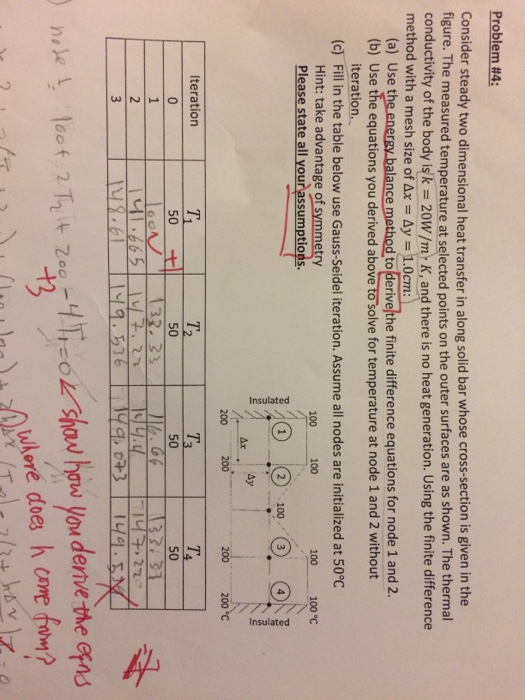 Problem #4:
Consider steady two dimensional heat transfer in along solid bar whose cross-section is given in the
figure. The measured temperature at selected points on the outer surfaces are as shown. The thermal
conductivity of the body is k = 20W/m · K, and there is no heat generation. Using the finite difference
method with a mesh size of Δx = Δy = 1.0cm:
(a) Use the energy balance method to derive the finite difference equations for node 1 and 2.
(b) Use the equations you derived above to solve for temperature at node 1 and 2 without
iteration.
(c) Fill in the table below use Gauss-Seidel iteration. Assume all nodes are initialized at 50°C
Hint: take advantage of symmetry
Please state all your assumptions.
100 100 100 100 °C
Insulated 1 2 100 3 4 Insulated
Δx Δy
200 200 200 200 °C
Iteration T1 T2 T3 T4
0 50 50 50 50
1 100 133.33 116.66 133.33
2 141.665 147.22 147.220
3 148.61 149.536 149.073
+1
-7
node 1: 100+2T2+200-4T1=0
show how you derive the eqns
+3
Where does h come from?